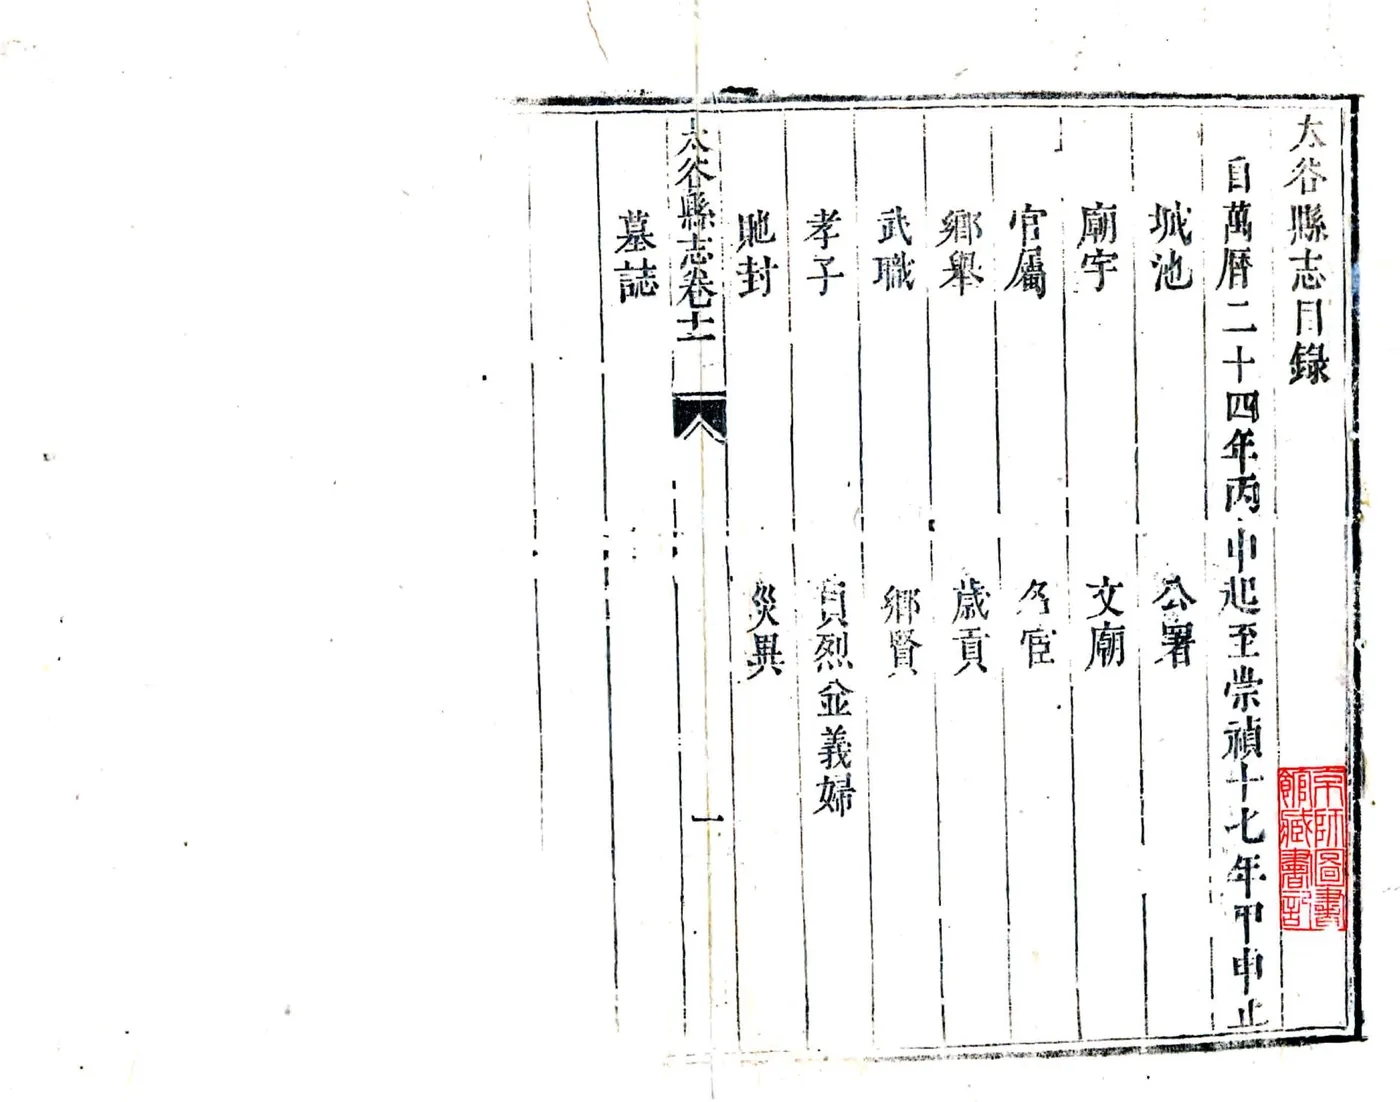 太谷縣志目錄
自萬曆二十四年丙申起至崇禎十七年甲申止
城池 公署
廟宇 文廟
官屬 名宦
鄉舉 歲貢
武職 鄉賢
孝子 貞烈並義婦
貤封 災異
太谷縣志卷十一 一
墓誌
京師圖書館藏書記